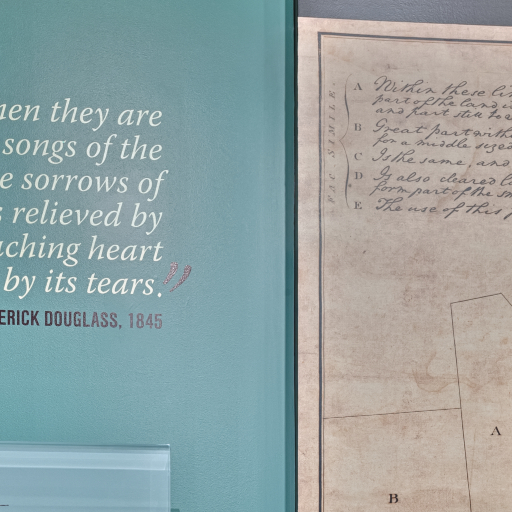 hen they are
songs of the
e sorrows of
s relieved by
aching heart
by its tears.”
ERICK DOUGLASS, 1845
FAC SIMILE.
A Within these lin
part of the land
and part still to
B Great part with
for a middle sized
C Is the same, and
D Is also cleared l
form part of the
E The use of this
A
B